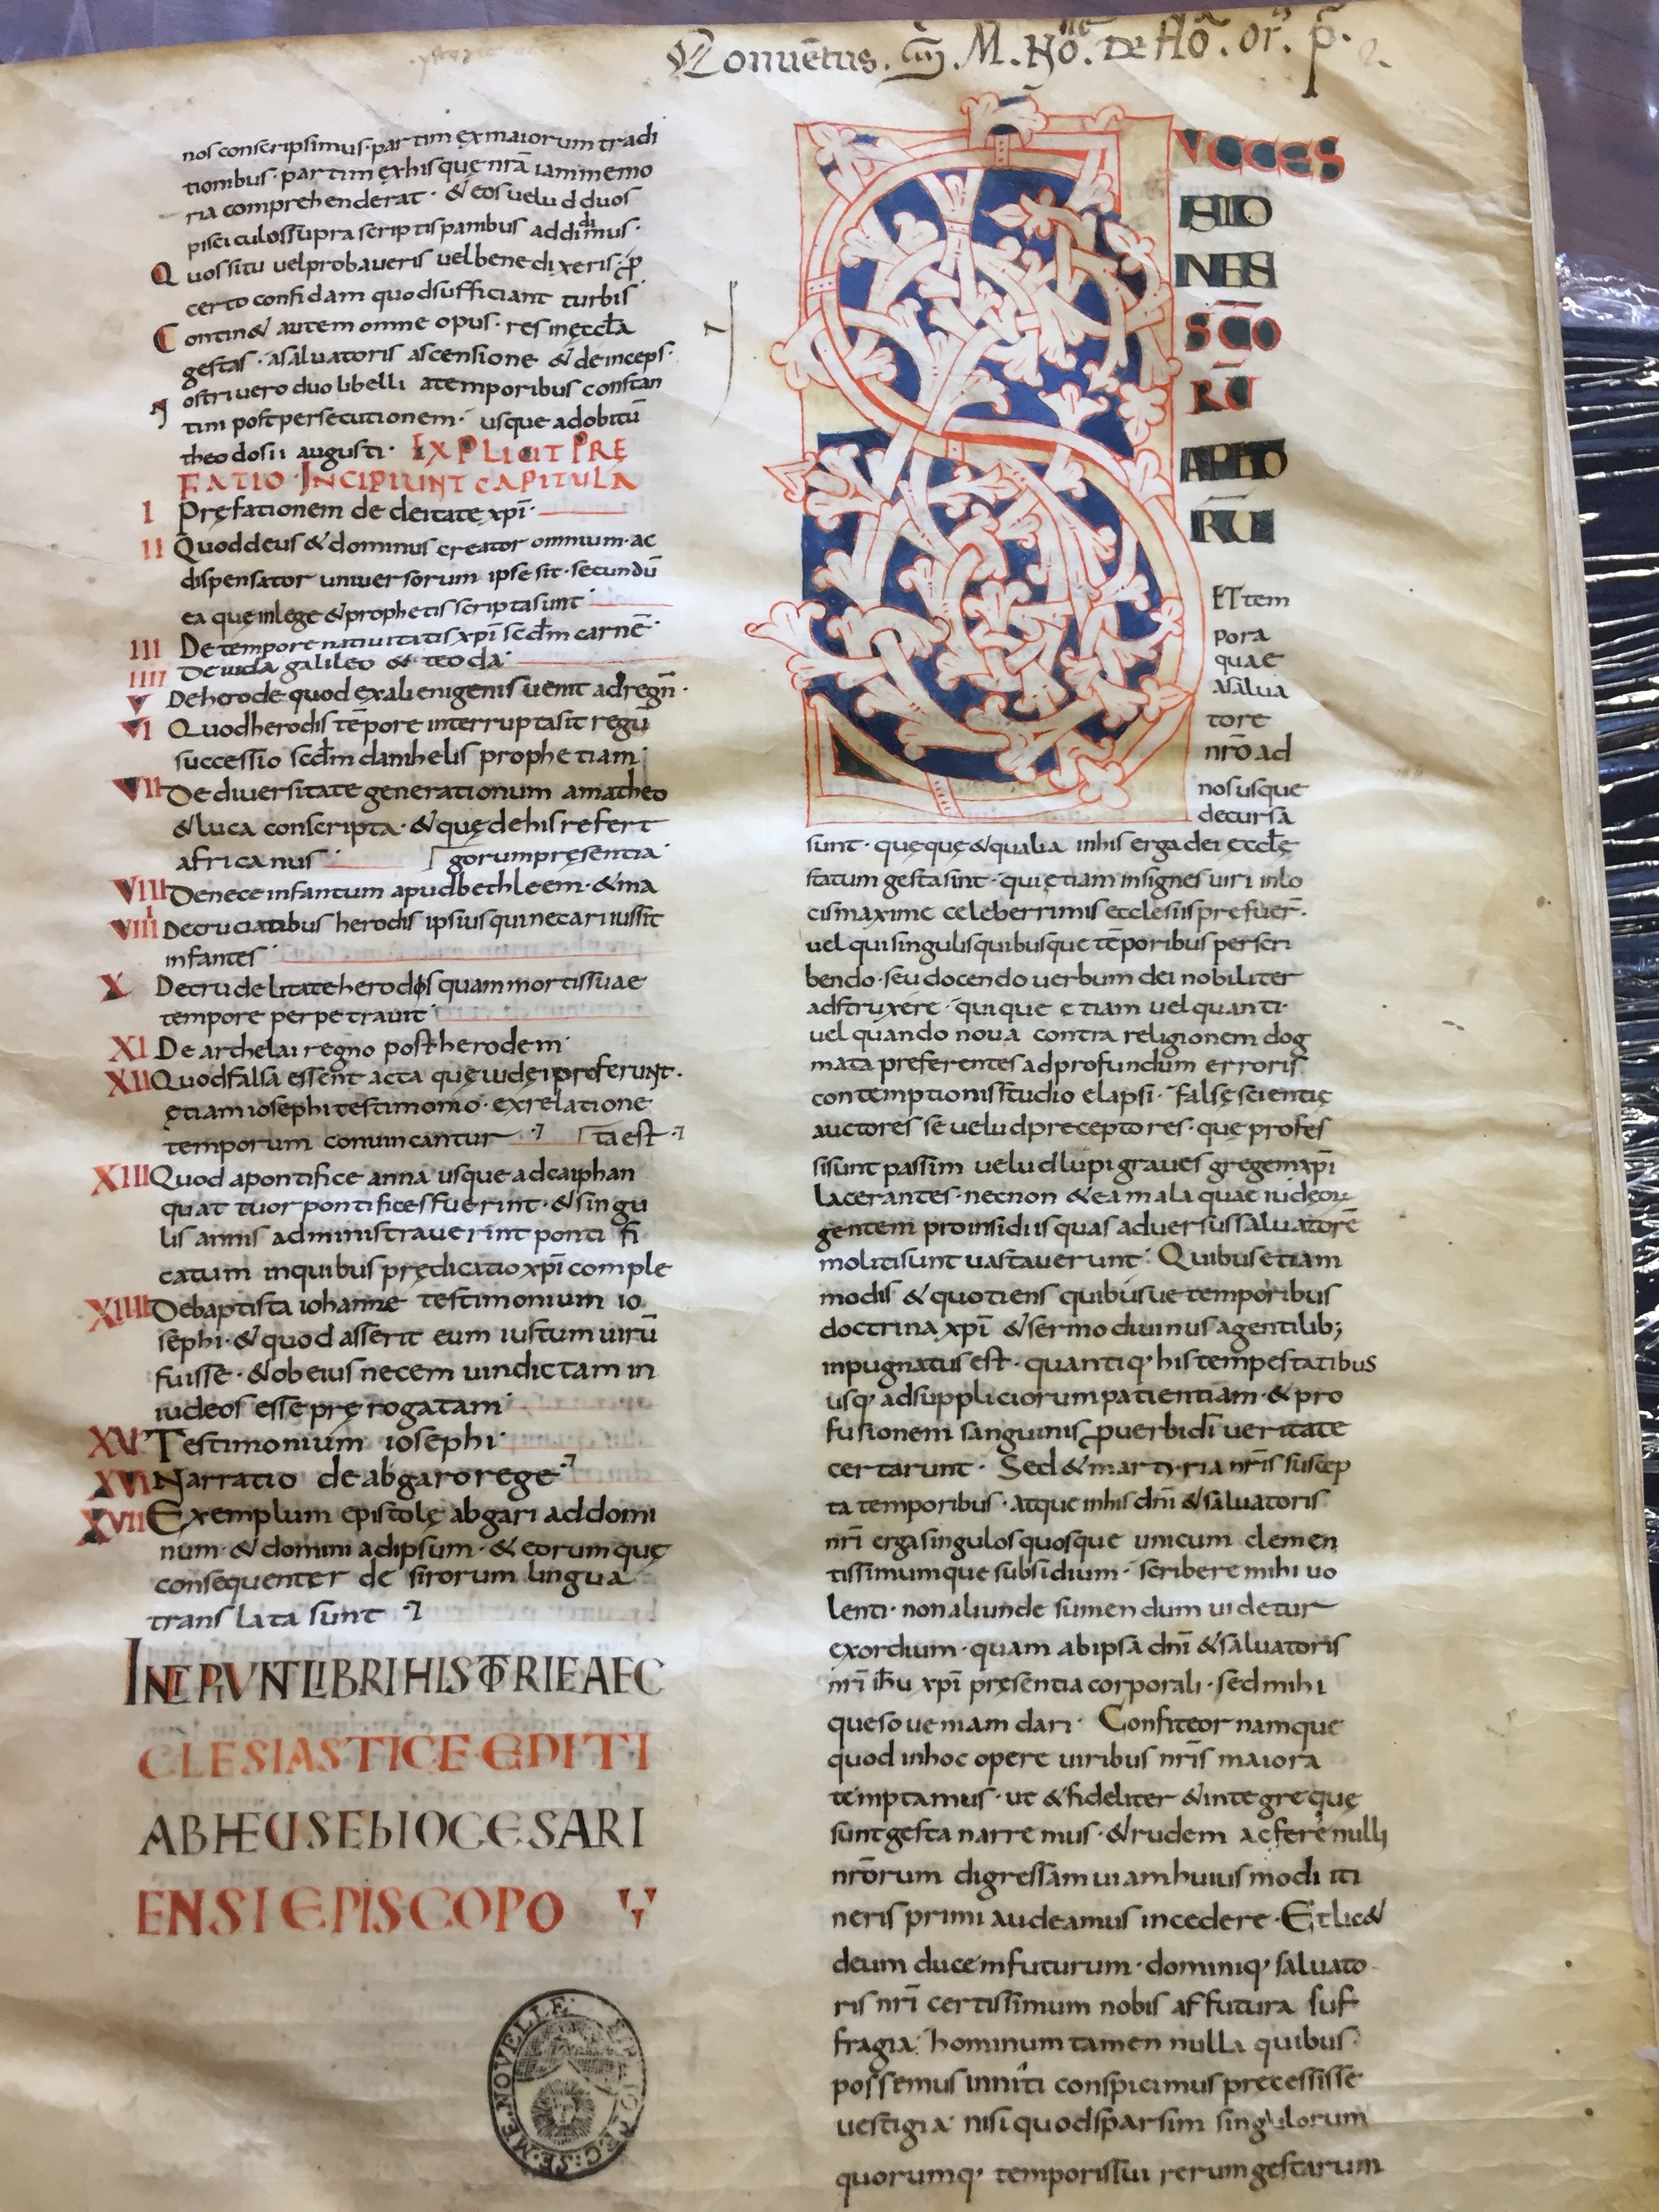 Conuētus. S. M. No. De Flo. or. p.
nos conscripsimus · partim ex maiorum tradi
tionibus · partim ex his quę nrā iam memo
ria comprehenderat · & eos uelud duos
pisciculos supra scriptis panibus addidimus ·
Quos si tu uel probaveris uel benedixeris · p
certo confidam quod sufficiant turbis
Contin& autem omne opus · res in ęccła
gestas · a saluatoris ascensione & deinceps ·
Nostri uero duo libelli a temporibus constan
tini post persecutionem · usque ad obitū
theodosii augusti · EXPLICIT PRE
FATIO · INCIPIUNT CAPITULA
I Pręfationem de deitate xpī ·
II Quod deus & dominus creator omnium · ac
dispensator universorum ipse sit · secundū
ea que in lege & prophetis scripta sunt
III De tempore nativitatis xpī scdm carnē ·
IIII De iuda galileo & teoda ·
V De herode quod ex alienigenis uenit ad regn̄ ·
VI Quod herodis tēpore interrupta sit regū
successio scdm danihelis prophetiam ·
VII De diversitate generationum a matheo
& luca conscripta · & quę de his refert
africanus · gorum pręsentia ·
VIII De nece infantum apud bethleem · & ma
VIIII De cruciatibus herodis ipsius qui necari iussit
infantes
X De crudelitate herodis quam mortis suae
tempore perpetravit
XI De archelai regno post herodem ·
XII Quod falsa essent acta quę iudei proferunt ·
ętiam iosephi testimonio · ex relatione
temporum conuincantur · ta est ·
XIII Quod a pontifice anna usque ad caiphan
quattuor pontifices fuerint · & singu
lis annis administraverint ponti fi
catum in quibus prędicatio xpī comple
XIIII De baptista iohanne testimonium io
sephi · & quod asserit eum iustum uirū
fuisse · & ob eius necem uindictam in
iudeos esse prę rogatam
XV Testimonium iosephi ·
XVI Narratio de abgaro rege ·
XVII Exemplum epistolę abgari ad domi
num · & domini ad ipsum · & eorum quę
consequenter de sirorum lingua
translata sunt ·
INCIPIVNT LIBRI HISTORIE AEC
CLESIASTICE · EDITI
AB HEUSEBIO CESARI
ENSI EPISCOPO
SVCCES
SIO
NES
SC̄O
RŪ
APŁO
RŪ
ET tem
pora
quae
a salua
tore
nrō ad
nos usque
decursa
sunt · quęque & qualia in his erga dei ęccłę
statum gesta sint · qui ętiam insignes uiri in lo
cis maxime celeberrimis ecclesiis prefuer̄ ·
uel qui singulis quibusque tēporibus perscri
bendo · seu docendo uerbum dei nobiliter
adstruxere · qui que etiam uel quanti ·
uel quando noua contra religionem dog
mata preferentes ad profundum erroris
contemptionis studio elapsi · falsę scientię
auctores se uelud preceptores · que profes
si sunt passim uelud lupi graues gregem xpī
lacerantes · necnon & ea mala quae iudeoꝝ
gentem pro insidiis quas aduersus saluatorē
moliti sunt uastauerunt · Quibus etiam
modis & quotiens quibusue temporibus
doctrina xpī & sermo diuinus a gentilib;
inpugnatus est · quantiq; his tempestatibus
usq; ad suppliciorum patientiam · & pro
fusionem sanguinis p uerbi dī ueritate
certarunt · Sed & martyria nrīs suscep
ta temporibus · atque in his dnī & saluatoris
nrī erga singulos quosque unicum clemen
tissimumque subsidium · scribere mihi uo
lenti · non aliunde sumendum uidetur
exordium · quam ab ipsa dnī & saluatoris
nrī ihū xpī pręsentia corporali · sed mihi
queso ueniam dari · Confiteor namque
quod in hoc opere uiribus nrīs maiora
temptamus · ut & fideliter & integre quę
sunt gesta narremus · & rudem ac fere nulli
nrōrum digressam uiam huiusmodi iti
neris primi audeamus incedere · Et lic&
deum ducem futurum · dominiq; saluato
ris nrī certissimum nobis affutura suf
fragia · hominum tamen nulla quibus
possemus inniti conspicimus precessisse
uestigia nisi quod sparsim singulorum
quorumq; temporis sui rerum gestarum